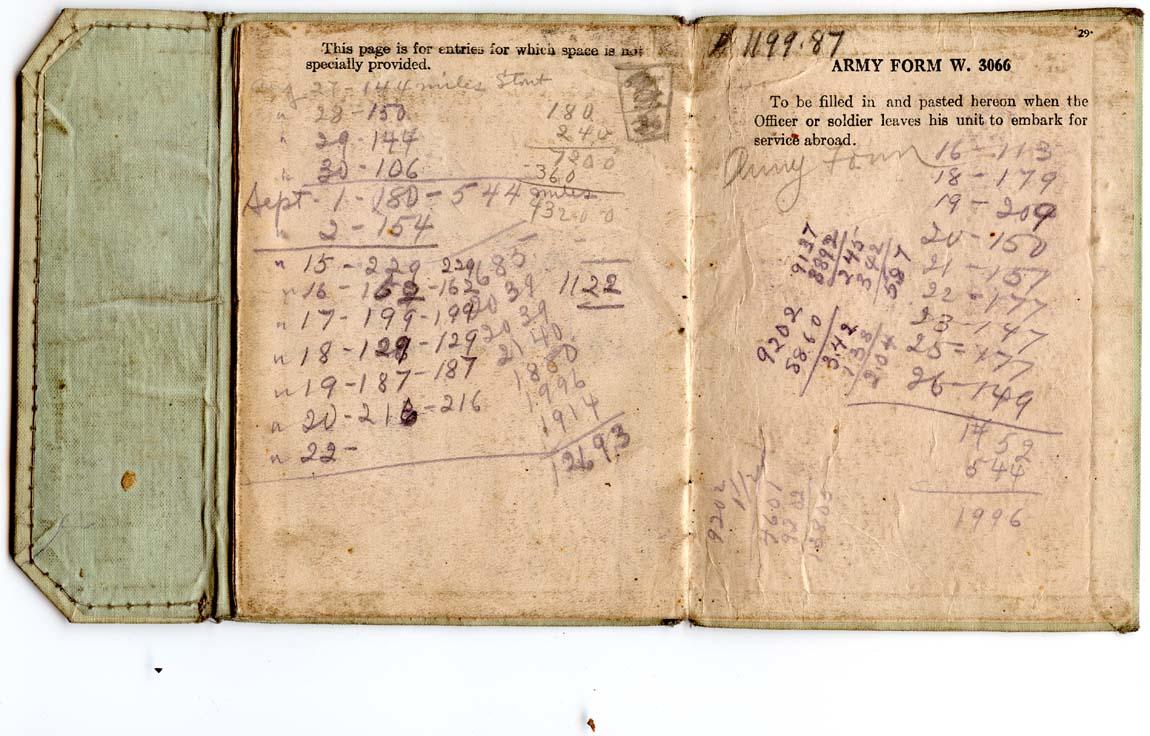 This page is for entries for which space is not
specially provided.
27-144 miles Stout
" 28-150
" 29-144
" 30-106
Sept-1-180-544 miles
" 2-154
" 15-229 229
" 16-162-162
" 17-199-199
" 18-129-129
" 19-187-187
" 20-216-216
" 22-
180
240
7200
360
13200
685
20 39
20 39
21 40
1880
1996
1914
12693
1122
1199.87
29.
ARMY FORM W. 3066
To be filled in and pasted hereon when the
Officer or soldier leaves his unit to embark for
service abroad.
Army Form
16-113
18-179
19-209
20-150
21-157
22-177
23-147
25-177
26-149
1452
544
1996
9137
8892
245
342
587
9202
58.60
3.42
138
204
9202
1/2
4601
9202
13803